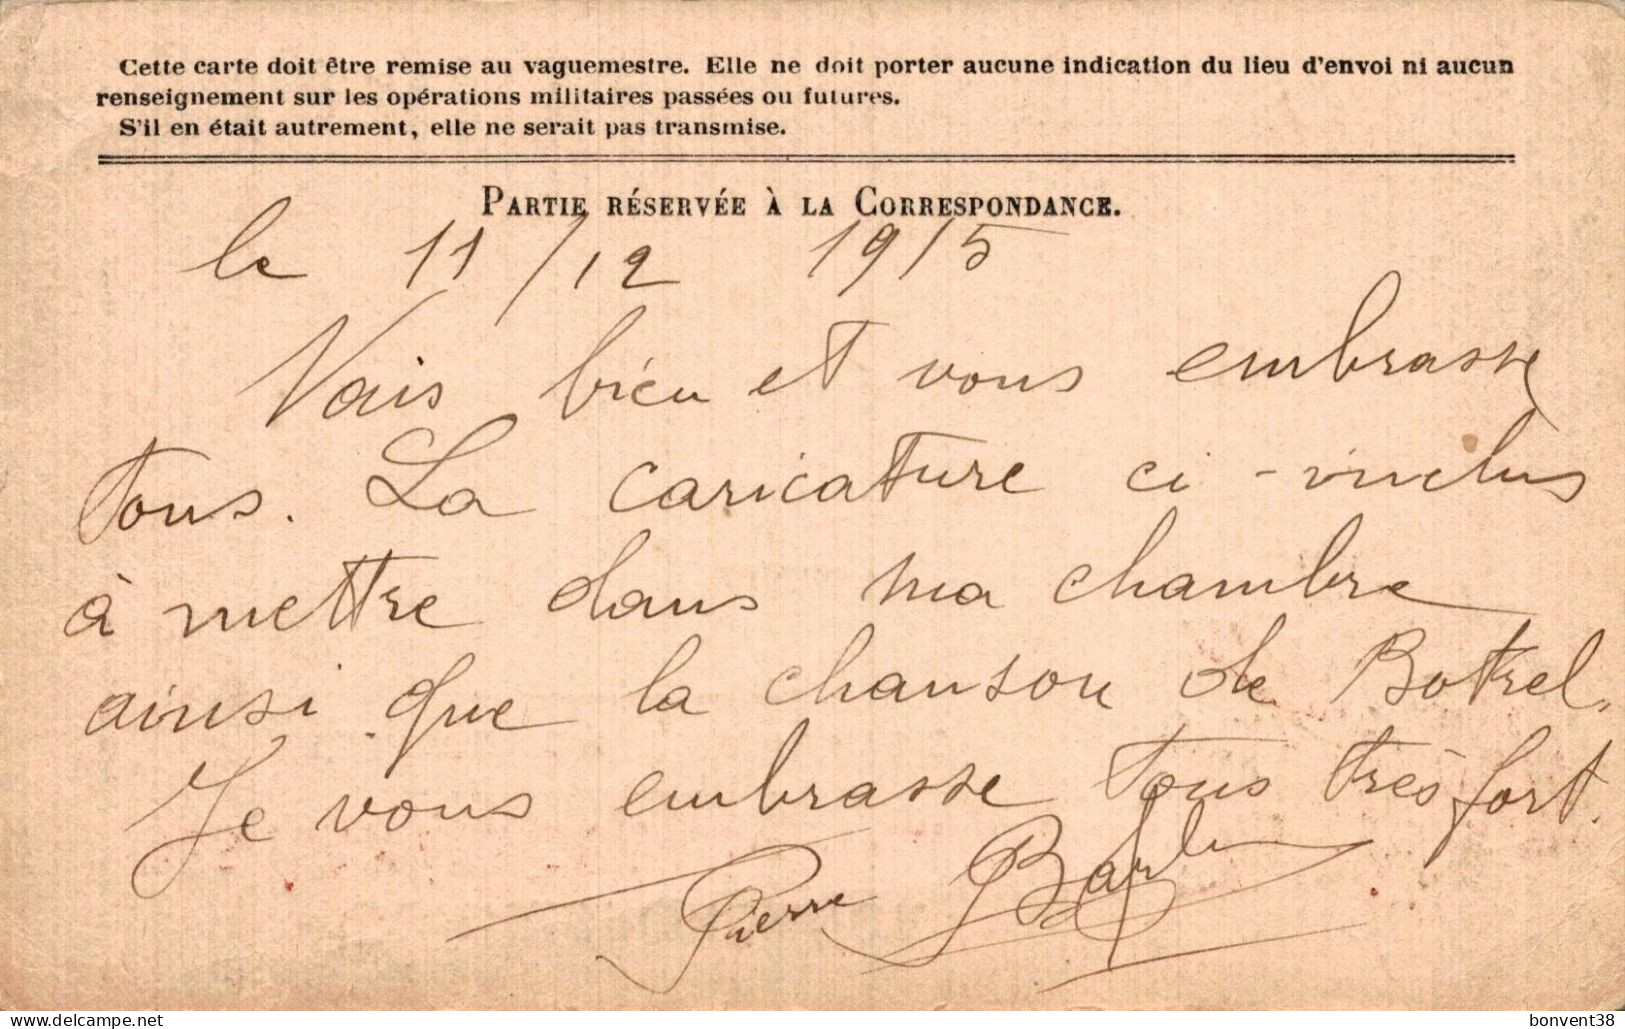 Cette carte doit être remise au vaguemestre. Elle ne doit porter aucune indication du lieu d'envoi ni aucun
renseignement sur les opérations militaires passées ou futures.
S'il en était autrement, elle ne serait pas transmise.
PARTIE RÉSERVÉE À LA CORRESPONDANCE.
le 11/12 1915
Vais bien et vous embrasse
tous. La caricature ci-inclus
à mettre dans ma chambre
ainsi que la chanson de Botrel.
Je vous embrasse tous très fort.
Pierre
bonvent38